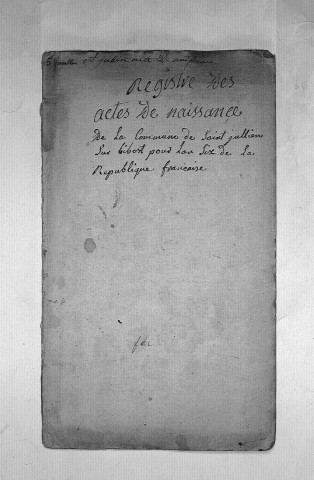 Registre Des
actes De naissance
De La Commune de Saint jullien
Sur bibost pour Lan Six de La
Republique francaise